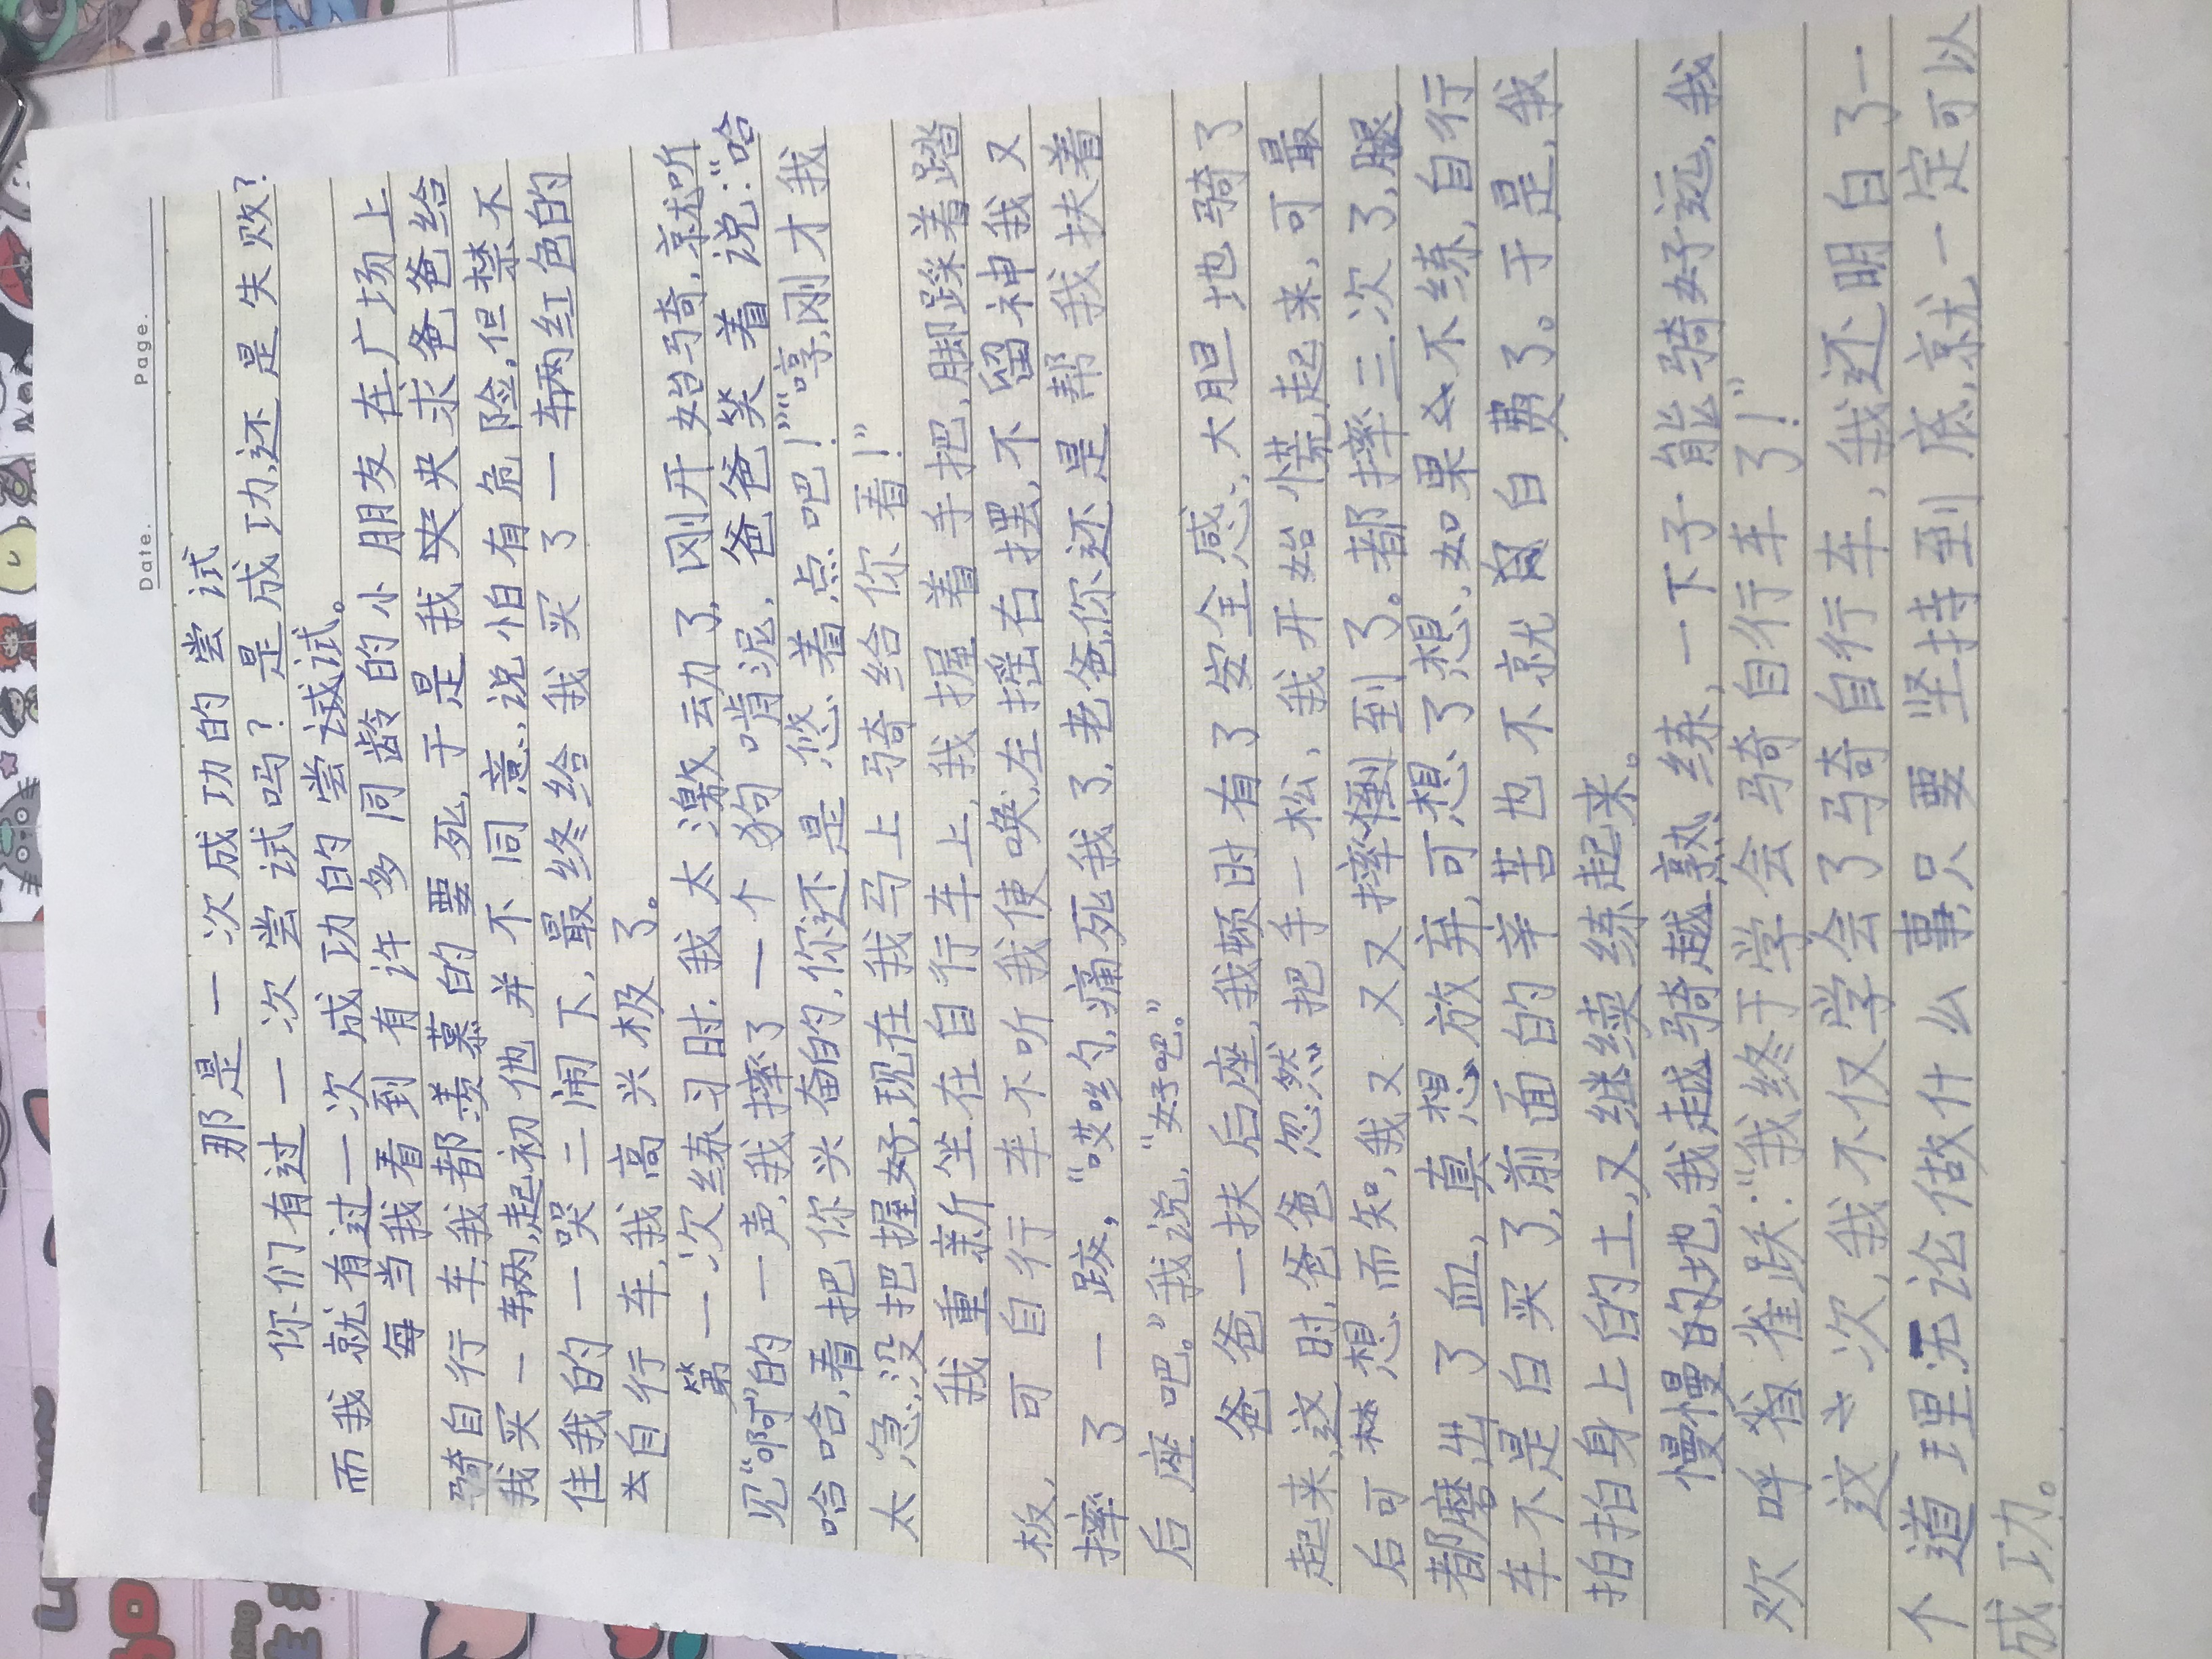 Date.    Page.
那是一次成功的尝试
你们有过一次尝试吗？是成功,还是失败？
而我就有过一次成功的尝试试。
每当我看到有许多同龄的小朋友在广场上
骑自行车,我都羡慕的要死,于是我央央求爸爸给
我买一辆,起初他并不同意,说怕有危险,但禁不
住我的一哭二闹下,最终给我买了一辆红色的
去自行车,我高兴极了。
第一次练习时,我太激动了,刚开始骑,就听
见“啊”的一声,我摔了一个狗啃泥,爸爸笑着说:“哈
哈哈,看把你兴奋的,你还是悠着点吧!”“哼,刚才我
太急,没把握好,现在我马上骑给你看!”
我重新坐在自行车上,我握着手把,脚踩着踏
板,可自行车不听我使唤,左摇右摆,不留神我又
摔了一跤,“哎哟,痛死我了,老爸,你还是帮我扶着
后座吧。”我说,“好吧。”
爸爸一扶后座,我顿时有了安全感,大胆地骑了
起来,这时,爸爸忽然把手一松,我开始慌起来,可最
后可想而知,我又又又摔倒到了。都摔三次了,腿
都磨出了血,真想放弃,可想了想,如果不练,自行
车不是白买了,前面的辛苦也不就白费了。于是,我
拍拍身上的土,又继续练起来。
慢慢的地,我越骑越熟练,一下子能骑好远,我
欢呼雀跃:“我终于学会骑自行车了!”
这次,我不仅学会了骑自行车,我还明白了一
个道理:无论做什么事,只要坚持到底,就一定可以
成功。